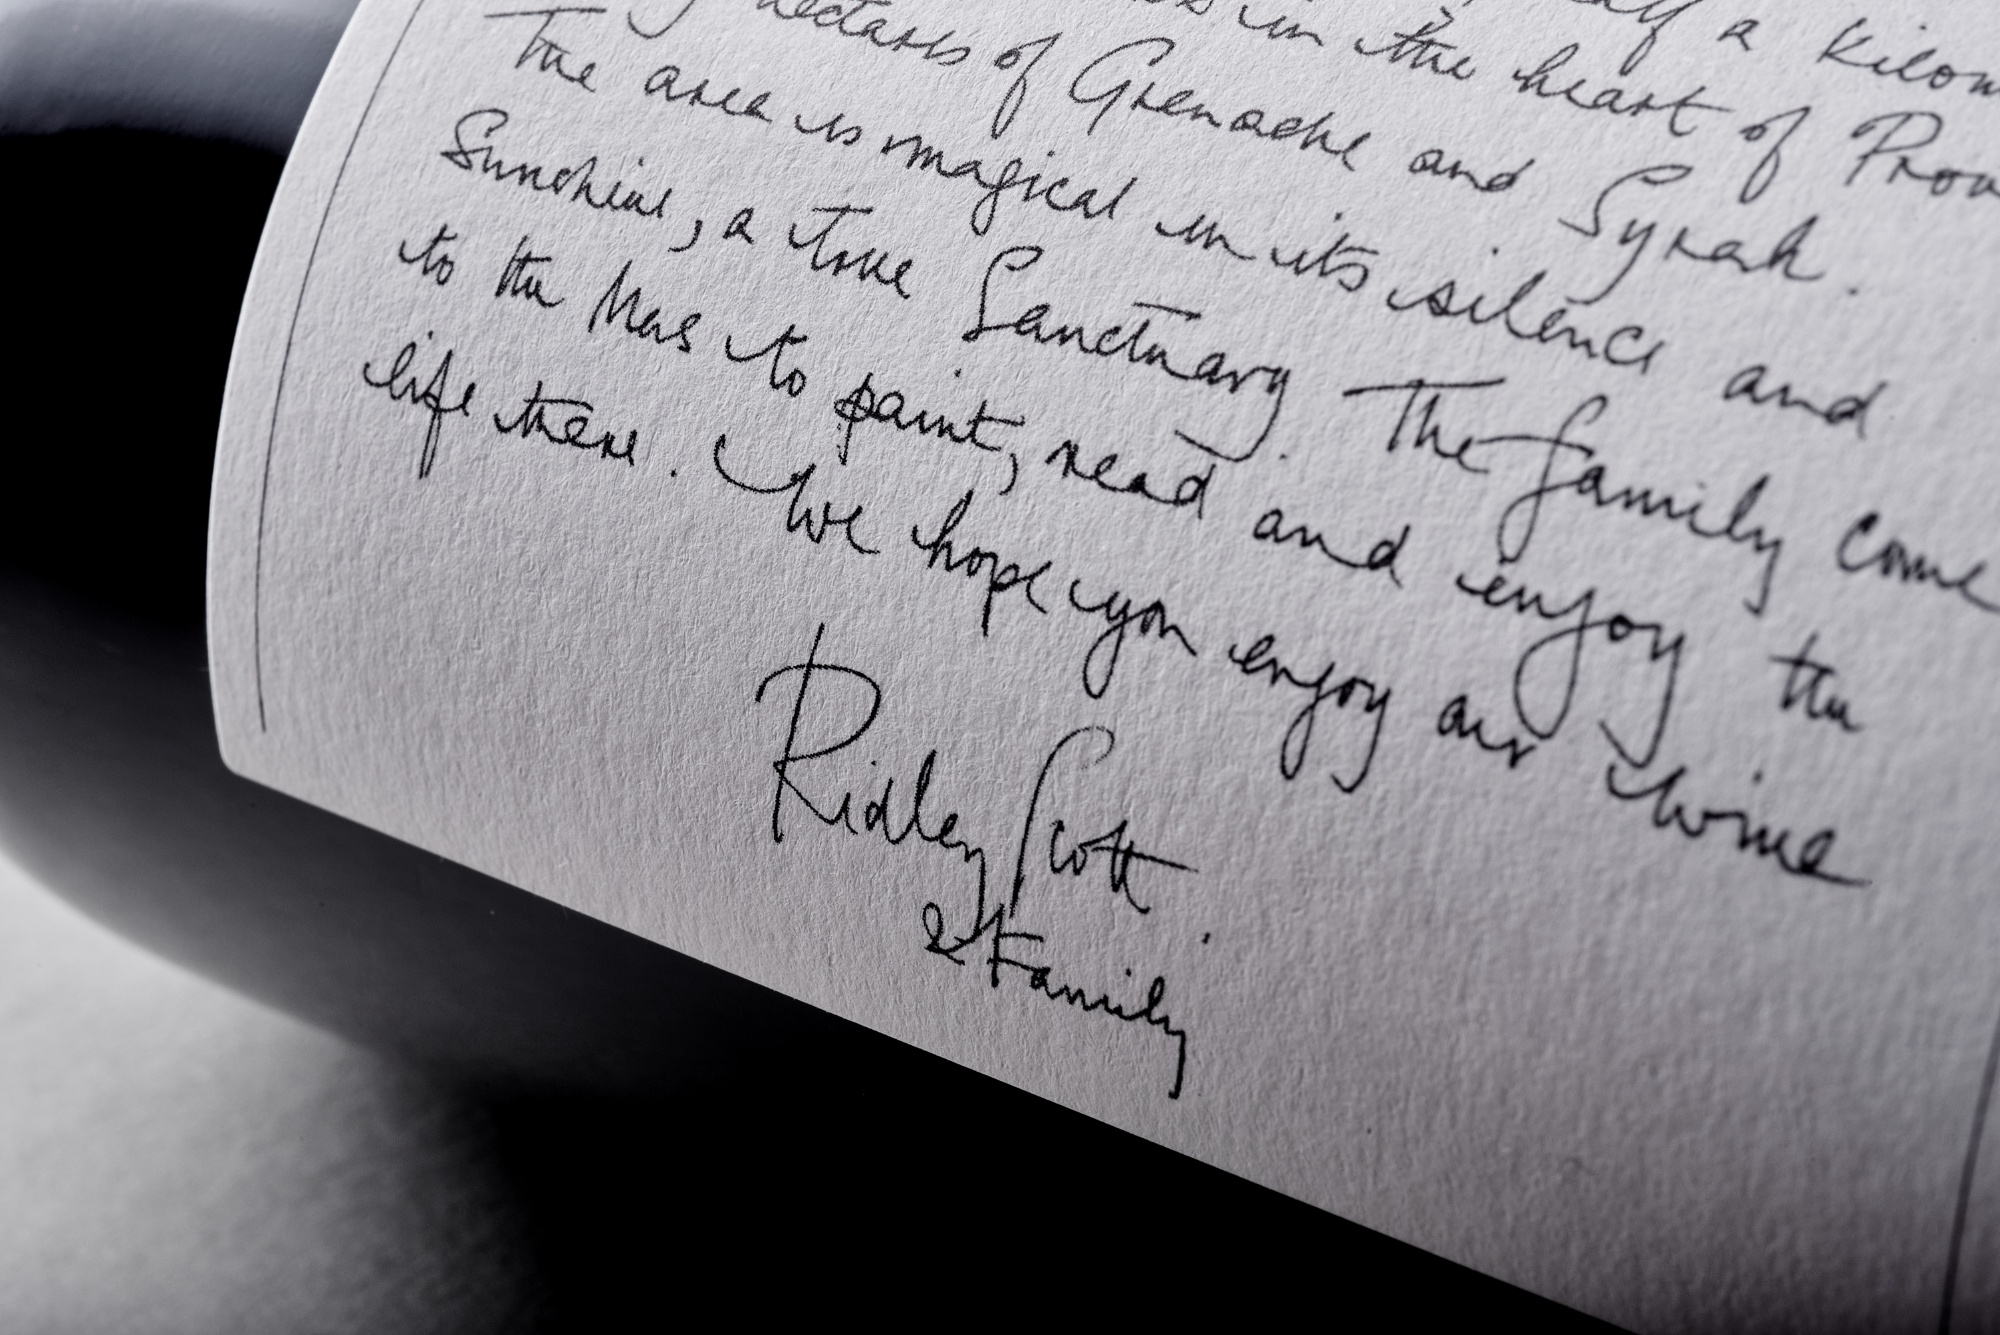 half a kilom
in the heart of Prov
hectares of Grenache and Syrah.
The area is magical in its silence and
Sunshine, a true Sanctuary. The family come
to the Mas to paint, read and enjoy the
life there. We hope you enjoy our wine
Ridley Scott
& Family